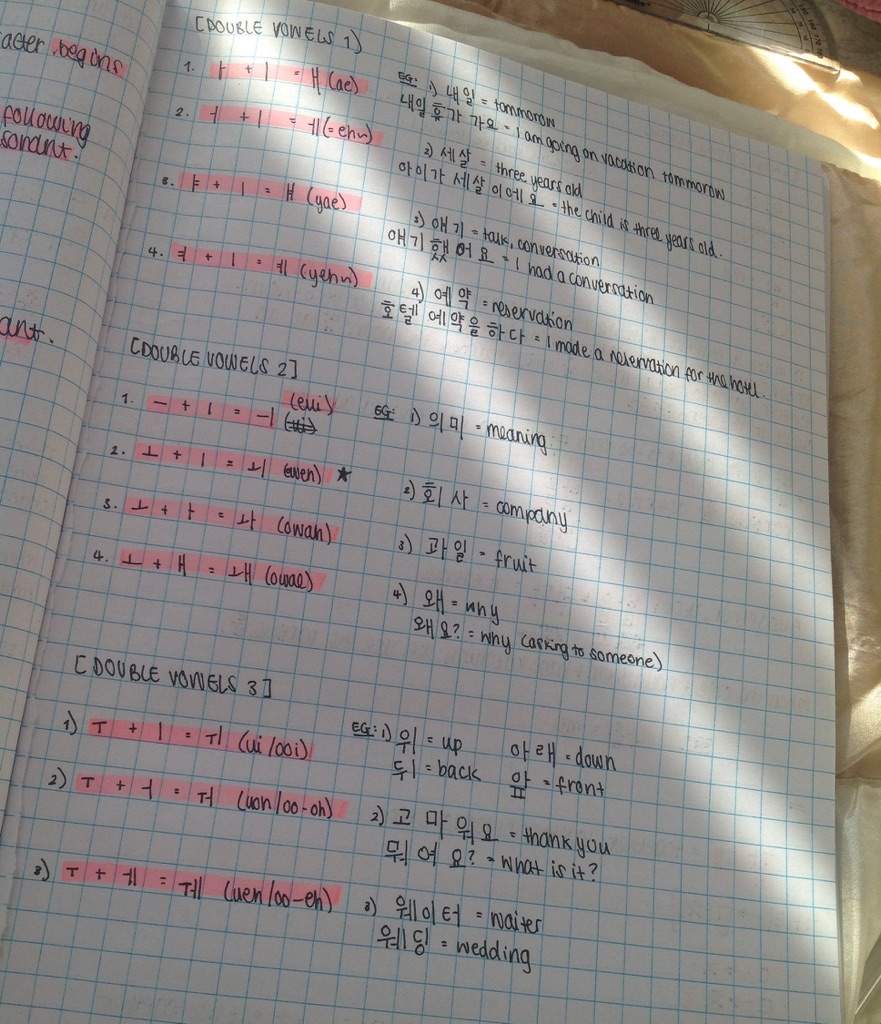 acter begins
following
sonant.
ant.
[DOUBLE VOWELS 1]
1. ㅏ + ㅣ = ㅐ (ae)
2. ㅓ + ㅣ = ㅔ (=ehn)
3. ㅑ + ㅣ = ㅒ (yae)
4. ㅕ + ㅣ = ㅖ (yehn)
EG: 1) 내일 = tommorow
내일 휴가 가요 = I am going on vacation tommorow
2) 세살 = three years old
아이가 세살이에요 = the child is three years old.
3) 얘기 = talk, conversation
얘기 했어요 = I had a conversation
4) 예약 = reservation
호텔 예약을 하다 = I made a reservation for the hotel.
[DOUBLE VOWELS 2]
1. ㅡ + ㅣ = ㅢ (eui)
2. ㅗ + ㅣ = ㅚ (weh) ★
3. ㅗ + ㅏ = ㅘ (owah)
4. ㅗ + ㅐ = ㅙ (owae)
EG: 1) 의미 = meaning
2) 회사 = company
3) 과일 = fruit
4) 왜 = why
왜요? = why (asking to someone)
[DOUBLE VOWELS 3]
1) ㅜ + ㅣ = ㅟ (ui/ooi)
2) ㅜ + ㅓ = ㅝ (uoh/oo-oh)
3) ㅜ + ㅔ = ㅞ (ueh/oo-eh)
EG: 1) 위 = up 아래 = down
뒤 = back 앞 = front
2) 고마워요 = thank you
뭐어요? = what is it?
3) 웨이터 = waiter
웨딩 = wedding